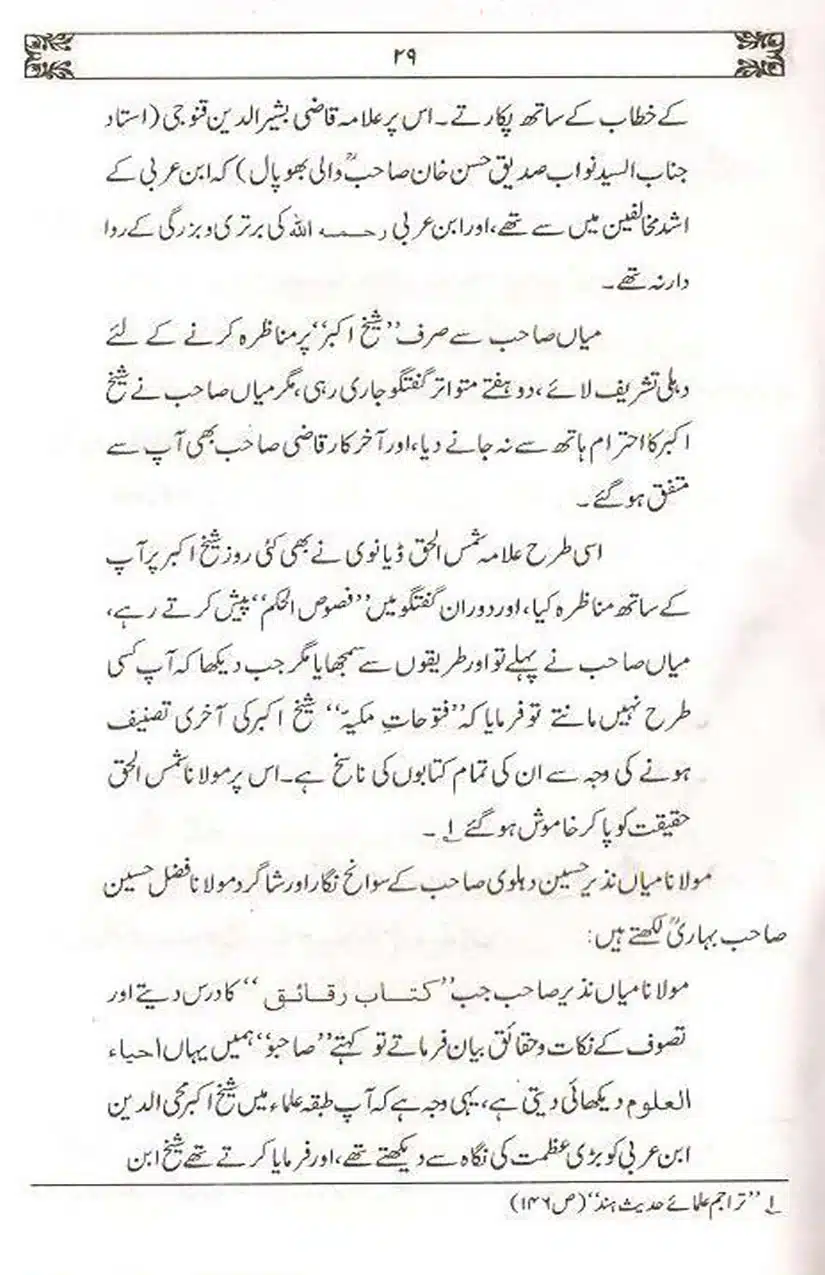 ۲۹
کے خطاب کے ساتھ پکارتے۔ اس پر علامہ قاضی بشیر الدین قنوجی (استاد
جناب السید نواب صدیق حسن خان صاحبؒ والی بھوپال) کہ ابن عربی کے
اشد مخالفین میں سے تھے، اور ابن عربی رحمہ اللہ کی برتری و بزرگی کے روا
دار نہ تھے۔
میاں صاحب سے صرف ”شیخ اکبر“ پر مناظرہ کرنے کے لئے
دہلی تشریف لائے، دو ہفتے متواتر گفتگو جاری رہی، مگر میاں صاحب نے شیخ
اکبر کا احترام ہاتھ سے نہ جانے دیا، اور آخر کار قاضی صاحب بھی آپ سے
متفق ہو گئے۔
اسی طرح علامہ شمس الحق ڈیانوی نے بھی کئی روز شیخ اکبر پر آپ
کے ساتھ مناظرہ کیا، اور دوران گفتگو میں ”فصوص الحکم“ پیش کرتے رہے،
میاں صاحب نے پہلے تو اور طریقوں سے سمجھایا مگر جب دیکھا کہ آپ کسی
طرح نہیں مانتے تو فرمایا کہ ”فتوحاتِ مکیہ“ شیخ اکبر کی آخری تصنیف
ہونے کی وجہ سے ان کی تمام کتابوں کی ناسخ ہے۔ اس پر مولانا شمس الحق
حقیقت کو پا کر خاموش ہو گئے ۱؎۔
مولانا میاں نذیر حسین دہلوی صاحب کے سوانح نگار اور شاگرد مولانا فضل حسین
صاحب بہاریؒ لکھتے ہیں:
مولانا میاں نذیر صاحب جب ”کتاب رقائق“ کا درس دیتے اور
تصوف کے نکات و حقائق بیان فرماتے تو کہتے ”صاحبو“ ہمیں یہاں احیاء
العلوم دیکھائی دیتی ہے، یہی وجہ ہے کہ آپ طبقہ علماء میں شیخ اکبر محی الدین
ابن عربی کو بڑی عظمت کی نگاہ سے دیکھتے تھے، اور فرمایا کرتے تھے شیخ ابن
۱؎ ”تراجم علمائے حدیث ہند“ (ص۱۴۶)